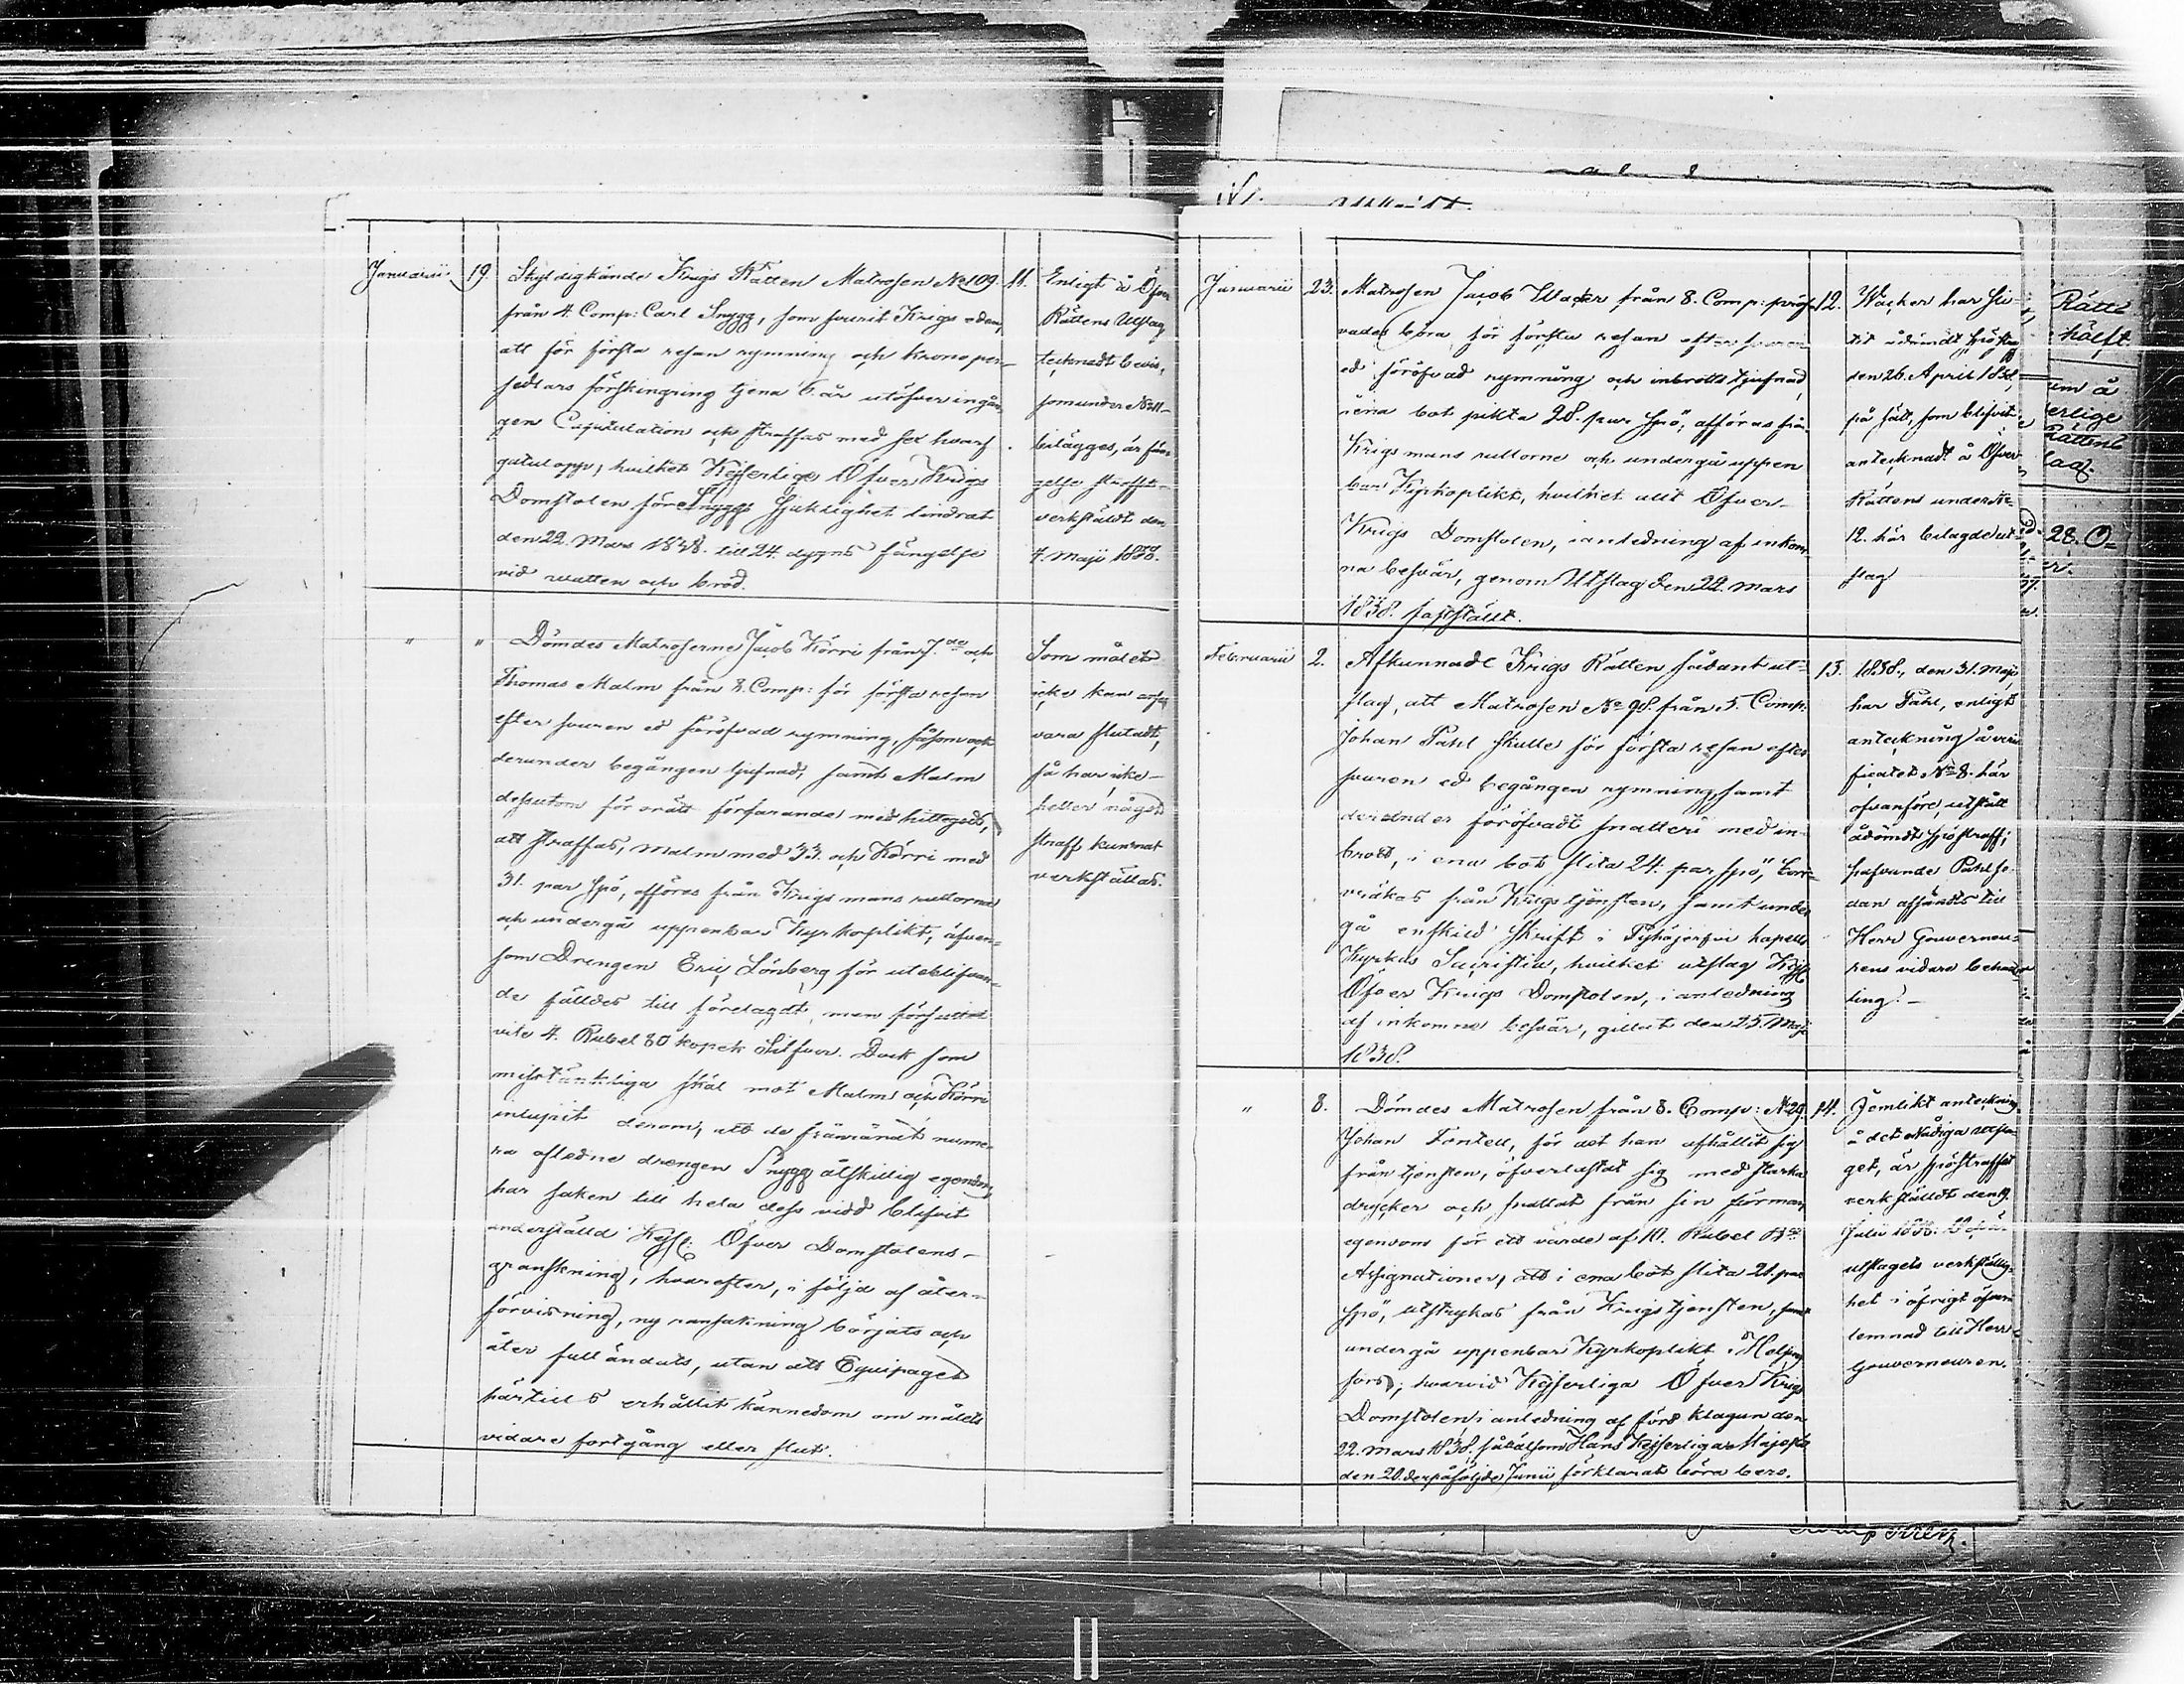 Januarii 19. Skyldigkände Krigs Rätten Matrosen No 109.
från 4. Comp: Carl Snygg, som svurit Krigs eden,
att för första resan rymning och krono per-
sedlars förskingring tjena 6. år utöfver ingån
gen Capitulation och straffas med sex hvarf
gatulopp, hvilket Kejserlige Öfver Krigs
Domstolen före Snyggs sjuklighet lindrat
den 22. Mars 1838. till 24. dygns fängelse
vid vatten och bröd.
11. Enligt å Öfver
Rättens Utslag
tecknadt bevis,
som under No 11
bilägges, är fän
gelse straffet
verkstäldt den
7. Maji 1838.
" " Dömdes Matroserne Jacob Körri från 7.de och
Thomas Malm från 8. Comp: för första resan
efter svuren ed föröfvad rymning, såsom och
derunder begången tjufnad, samt Malm
dessutom för orätt förfarande med hittegods,
att straffas, Malm med 33. och Körri med
31. par spö, afföras från Krigs mans rullorna
och undergå uppenbar Kyrkoplikt; äfven-
som Drengen Eric Lönberg för uteblifvan-
de fälldes till förelagdt, men försuttet
vite 4. Rubel 80 kopek Silfver. Dock som
misstänkliga skäl mot Malm och Körri
inlupit derom, att de frånränt numera
ra afledne drengen Snygg åtskillig egendom,
har saken till hela dess vidd blifvit
underställd Kejs: Öfver Domstolens
granskning, hvarefter, i följd af åter-
förvisning, ny ransakning börjats och
åter full ändats, utan att Equipaget
härtills erhållit kännedom om målets
vidare fortgång eller slut.
Som målet
icke kan anses
vara slutadt,
så har icke
heller något
straff kunnat
verkställas.
Januarii 23. Matrosen Jacob Wacker från 8. Comp: pröf-
vades böra för första resan efter svuren
ed föröfvad rymning och inbrotts tjufnad
i ena bot plikta 28. par spö, afföras från
Krigs mans rullorne och undergå uppen
bar Kyrkoplikt, hvilket allt Öfver-
Krigs Domstolen, i anledning af inkom
na besvär, genom Utslag den 22. Mars
1838. fastställt.
12. Wacker har sli
tit ådömdt spöstraff
den 26. April 1838,
på sätt, som blifvit
antecknadt å Öfver
Rättens under No
12. här bilagde ut-
slag
Februarii 2. Afkunnade Krigs Rätten sådant ut-
slag, att Matrosen No 98. från 5. Comp:
Johan Pahl skulle för första resan efter
svuren ed begången rymning, samt
derunder föröfvadt snatteri med in-
brott, i ena bot slita 24. par spö,
från Krigs tjensten, samt under
gå enskild skrift i kapells
Kyrkas Sacristia, hvilket utslag Kejs:
Öfver Krigs Domstolen, i anledning
af inkomne besvär, gillat den 25. Maji
1838.
13. 1838, den 31. Maji
har Pahl, enligt
anteckning å veri
ficatet No 8. här
ofvanföre, utstått
ådömdt spöstraff;
hafvande Pahl se-
dan affärdats till
Herr Gouverneu-
rens vidare behand
ling.
" 8. Dömdes Matrosen från 8. Comp: No 29.
Johan Fontell, för det han afhållit sig
från tjensten, öfverlastat sig med starka
drycker och snattat från sin förman
egendom för ett värde af 10. Rubel Bco
Assignationer, att i ena bot slita 21. par
spö, utstrykas från Krigs tjensten, samt
undergå uppenbar Kyrkoplikt i Helsing
fors; hvarvid Kejserliga Öfver Krigs
Domstolen i anledning af förd klagan den
22. Mars 1838. såväl som Hans Kejserliga Majestät
den 20. derpåföljde Junii förklarat böra bero.
14. Jemlikt anteckning
å det Nådiga utsla
get, är spöstraffet
verkställdt den 9.
Julii 1838.
utslagets verkställig
het i öfrigt öfver
lemnad till Herr
Gouverneuren.
Rätts
hälft.
em å
erlige
Rättens
lag.
28. O-